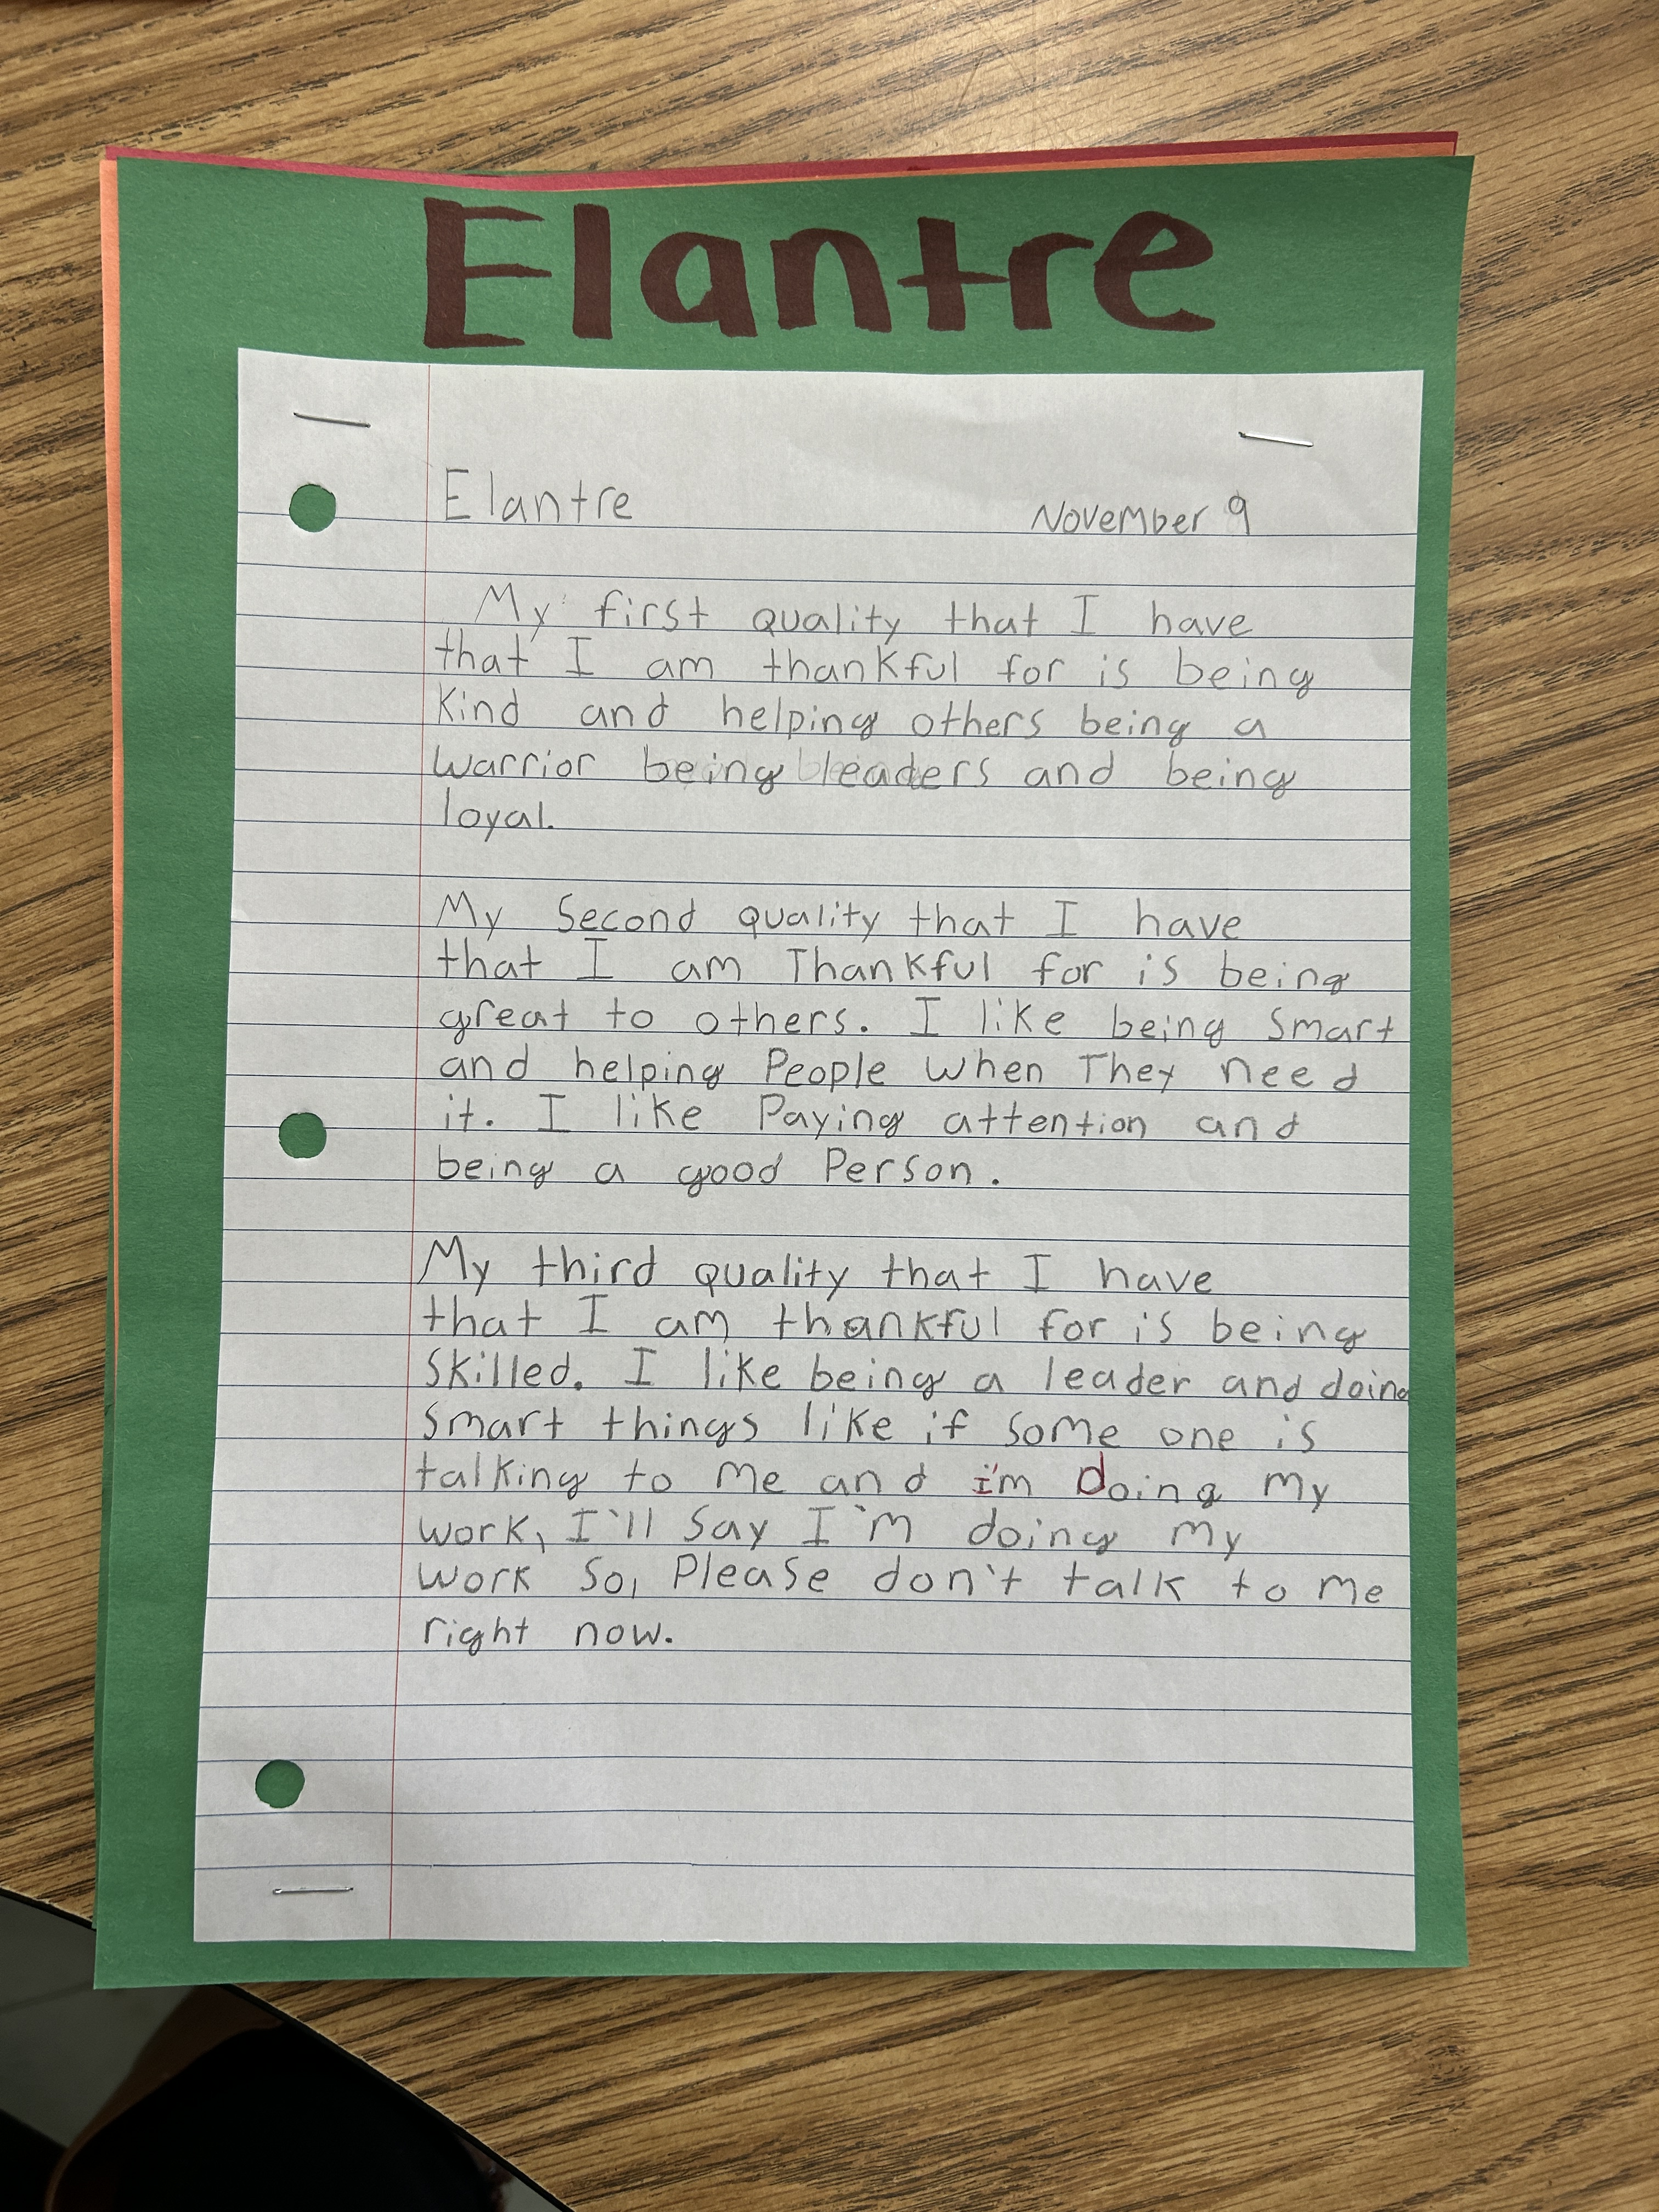 Elantre
Elantre November 9
My first quality that I have
that I am thankful for is being
Kind and helping others being a
warrior being leaders and being
loyal.
My Second quality that I have
that I am Thankful for is being
great to others. I like being Smart
and helping People when They need
it. I like Paying attention and
being a good Person.
My third quality that I have
that I am thankful for is being
Skilled. I like being a leader and doing
Smart things like if some one is
talking to me and i'm doing my
work, I'll Say I'm doing my
work So, Please don't talk to me
right now.